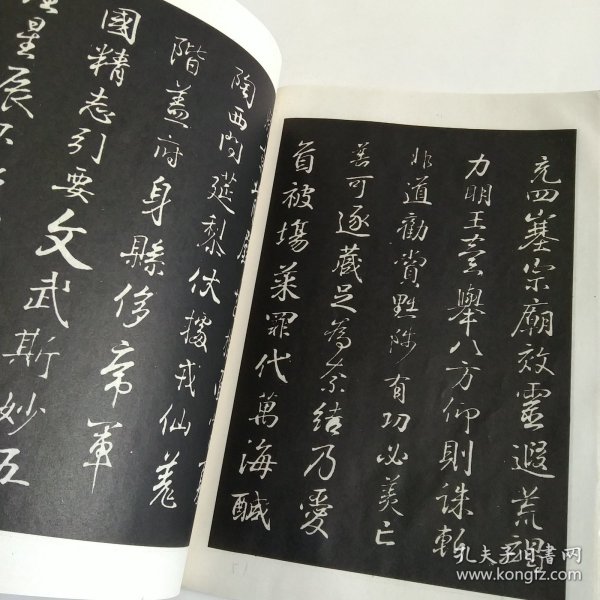 充四塞宗廟效靈遐荒
力明王舉八方仰則誅斬
非道勸賞黜陟有功必美亡
善可逐藏足為奈結乃愛
首被場菜罪代萬海醎
陶西閏筵黎伏據戎仙羌
階蓋府身縣侈帝軍
國精志引要文武斯妙五
星辰
孔夫子旧書网
www.kongfz.com